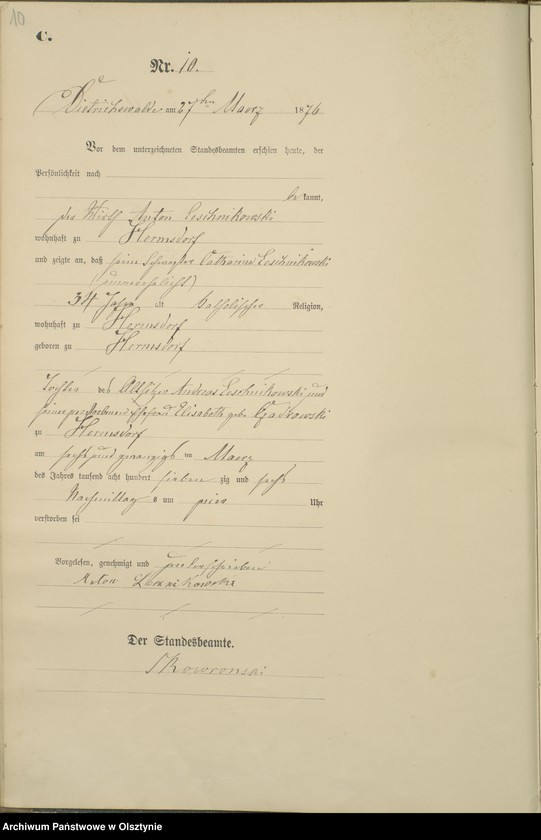 10
C.
Nr. 10.
Dietrichswalde am 27ten Maerz 1876
Vor dem unterzeichneten Standesbeamten erschien heute, der
Persönlichkeit nach
be kannt,
der Wirth Anton Leschnikowski
wohnhaft zu Hermsdorf
und zeigte an, daß seine Schwester Catharina Leschnikowski
(unverehelicht)
34 Jahre alt katholischer Religion,
wohnhaft zu Hermsdorf
geboren zu Hermsdorf
Tochter des Altsitzer Andreas Leschnikowski und
seiner verstorbenen Ehefrau Elisabeth geb.
zu Hermsdorf
am sechs und zwanzigsten Maerz
des Jahres tausend acht hundert sieben zig und sechs
Nachmittag s um Uhr
verstorben sei
Vorgelesen, genehmigt und unterschrieben
Anton
Der Standesbeamte.
Skowronski
Archiwum Państwowe w Olsztynie